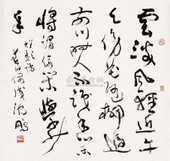 雲淡風輕近午
天傍花隨柳過
前川時人不識余心樂
將謂偷閑學少
年 程顥詩
沈鵬